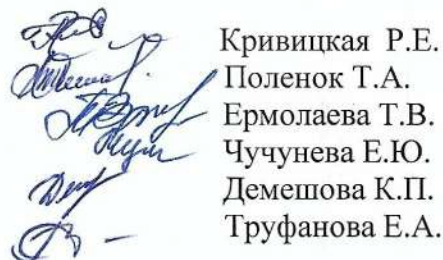 Кривицкая Р.Е.
Поленок Т.А.
Ермолаева Т.В.
Чучунева Е.Ю.
Демешова К.П.
Труфанова Е.А.